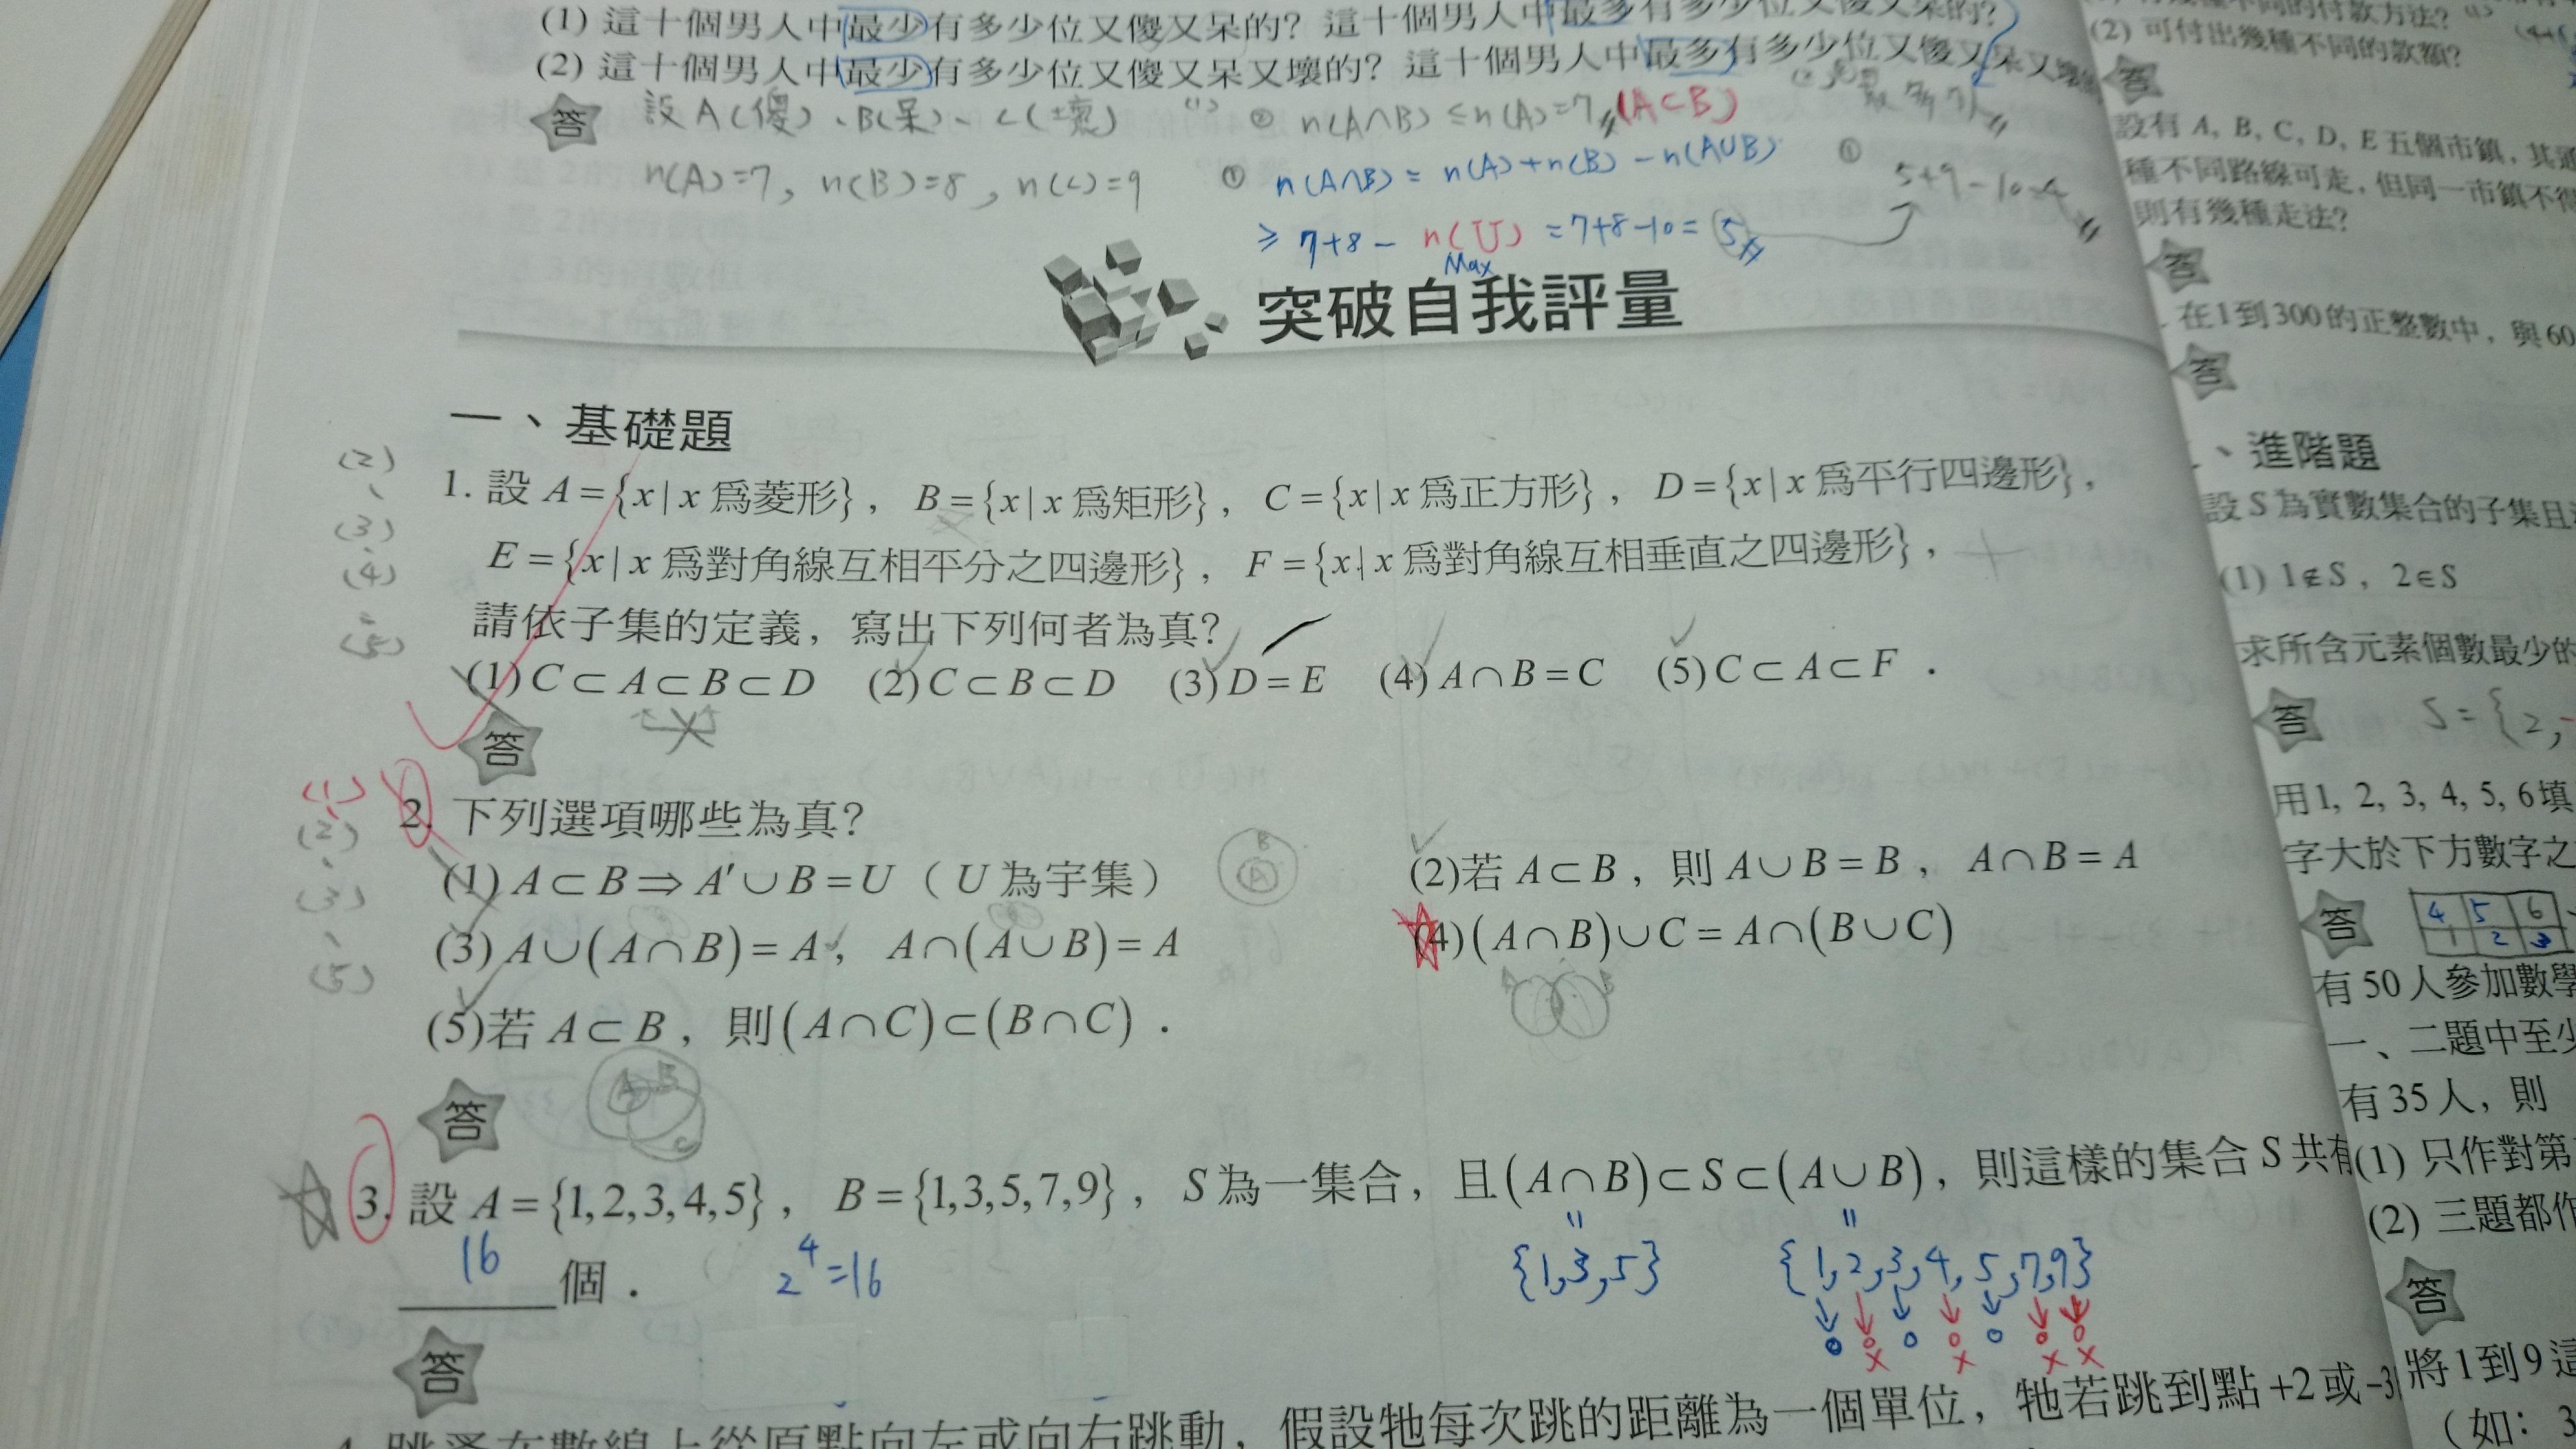 (1) 這十個男人中最少有多少位又傻又呆的？這十個男人中最多有多少位又傻又呆的？
(2) 這十個男人中最少有多少位又傻又呆又壞的？這十個男人中最多有多少位又傻又呆又壞
答 設A(傻)、B(呆)、C(壞) (1) ② n(A∩B) ≤ n(A)=7 (A⊂B)
n(A)=7, n(B)=8, n(C)=9 ① n(A∩B) = n(A)+n(B) - n(A∪B) ①
5+9-10=4
≥ 7+8 - n(U) = 7+8-10 = 5
Max
突破自我評量
一、基礎題
(2)、(3)、(4)、(5)
1. 設 A={x|x 為菱形}， B={x|x 為矩形}， C={x|x 為正方形}， D={x|x 為平行四邊形}，
E={x|x 為對角線互相平分之四邊形}， F={x|x 為對角線互相垂直之四邊形}，
請依子集的定義，寫出下列何者為真？
(1) C⊂A⊂B⊂D (2) C⊂B⊂D (3) D=E (4) A∩B=C (5) C⊂A⊂F．
答
(1)、(2)、(3)、(5)
2. 下列選項哪些為真？
(1) A⊂B⇒A′∪B=U（U 為宇集） (2)若 A⊂B，則 A∪B=B， A∩B=A
(3) A∪(A∩B)=A， A∩(A∪B)=A (4)(A∩B)∪C=A∩(B∪C)
(5)若 A⊂B，則(A∩C)⊂(B∩C)．
A B C
答
3. 設 A={1,2,3,4,5}， B={1,3,5,7,9}， S 為一集合，且(A∩B)⊂S⊂(A∪B)，則這樣的集合 S 共有
16 個． 2^4=16 {1,3,5} {1,2,3,4,5,7,9}
答
跳蚤在數線上從原點向左或向右跳動，假設牠每次跳的距離為一個單位，牠若跳到點 +2 或 -3
(2) 可付出幾種不同的款額？
答
設有 A, B, C, D, E 五個市鎮，其
種不同路線可走，但同一市鎮不得
則有幾種走法？
答
在1到300的正整數中，與60
答
、進階題
設 S 為實數集合的子集且
(1) 1∉S， 2∈S
求所含元素個數最少的
答 S={2,
用1, 2, 3, 4, 5, 6填
字大於下方數字之
答 4 5 6
1 2 3
有 50 人參加數學
一、二題中至少
有 35 人，則
(1) 只作對第
(2) 三題都作
答
將1到9這
（如：3